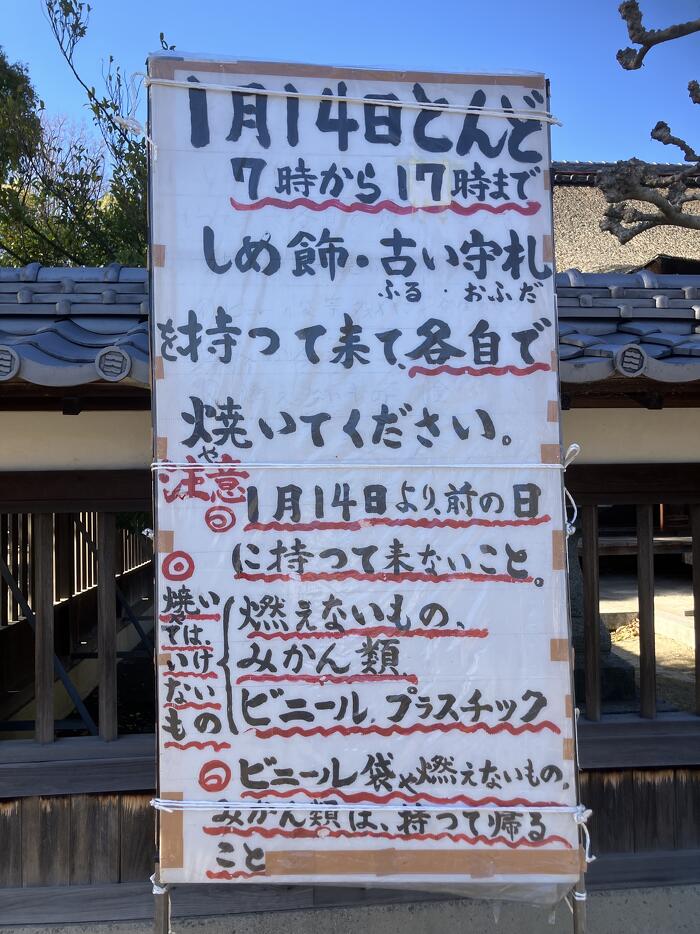 1月14日とんど
7時から17時まで
しめ飾・古い守札
ふる・おふだ
を持つて来て、各自で
焼いてください。
や
注意
◎1月14日より、前の日
に持つて来ないこと。
◎
焼い
ては、
いけ
ない
もの
燃えないもの、
みかん類、
ビニール、プラスチック
◎ビニール袋や燃えないもの、
みかん類は、持つて帰る
こと